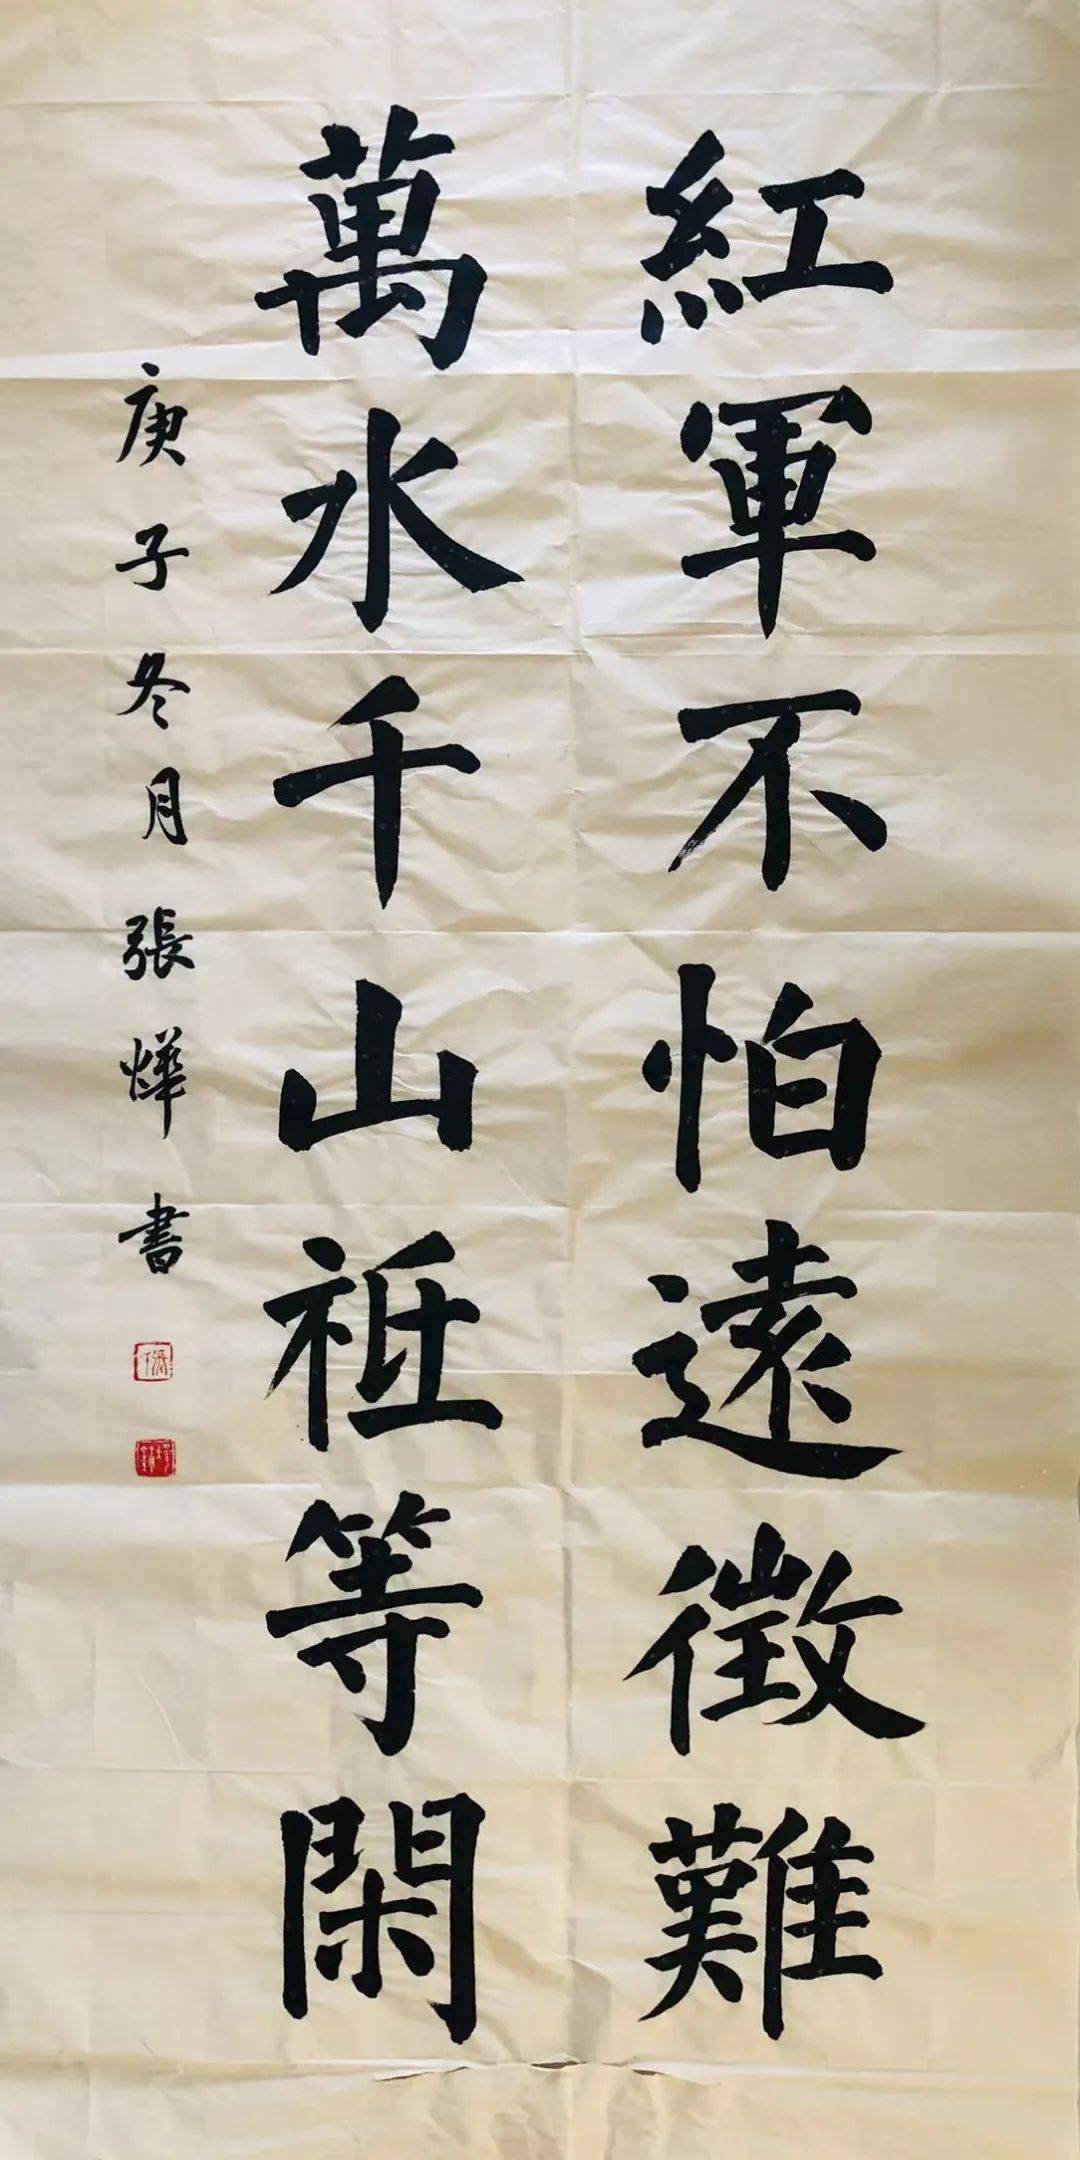 紅軍不怕遠徵難
萬水千山祇等閑
庚子冬月張燁書